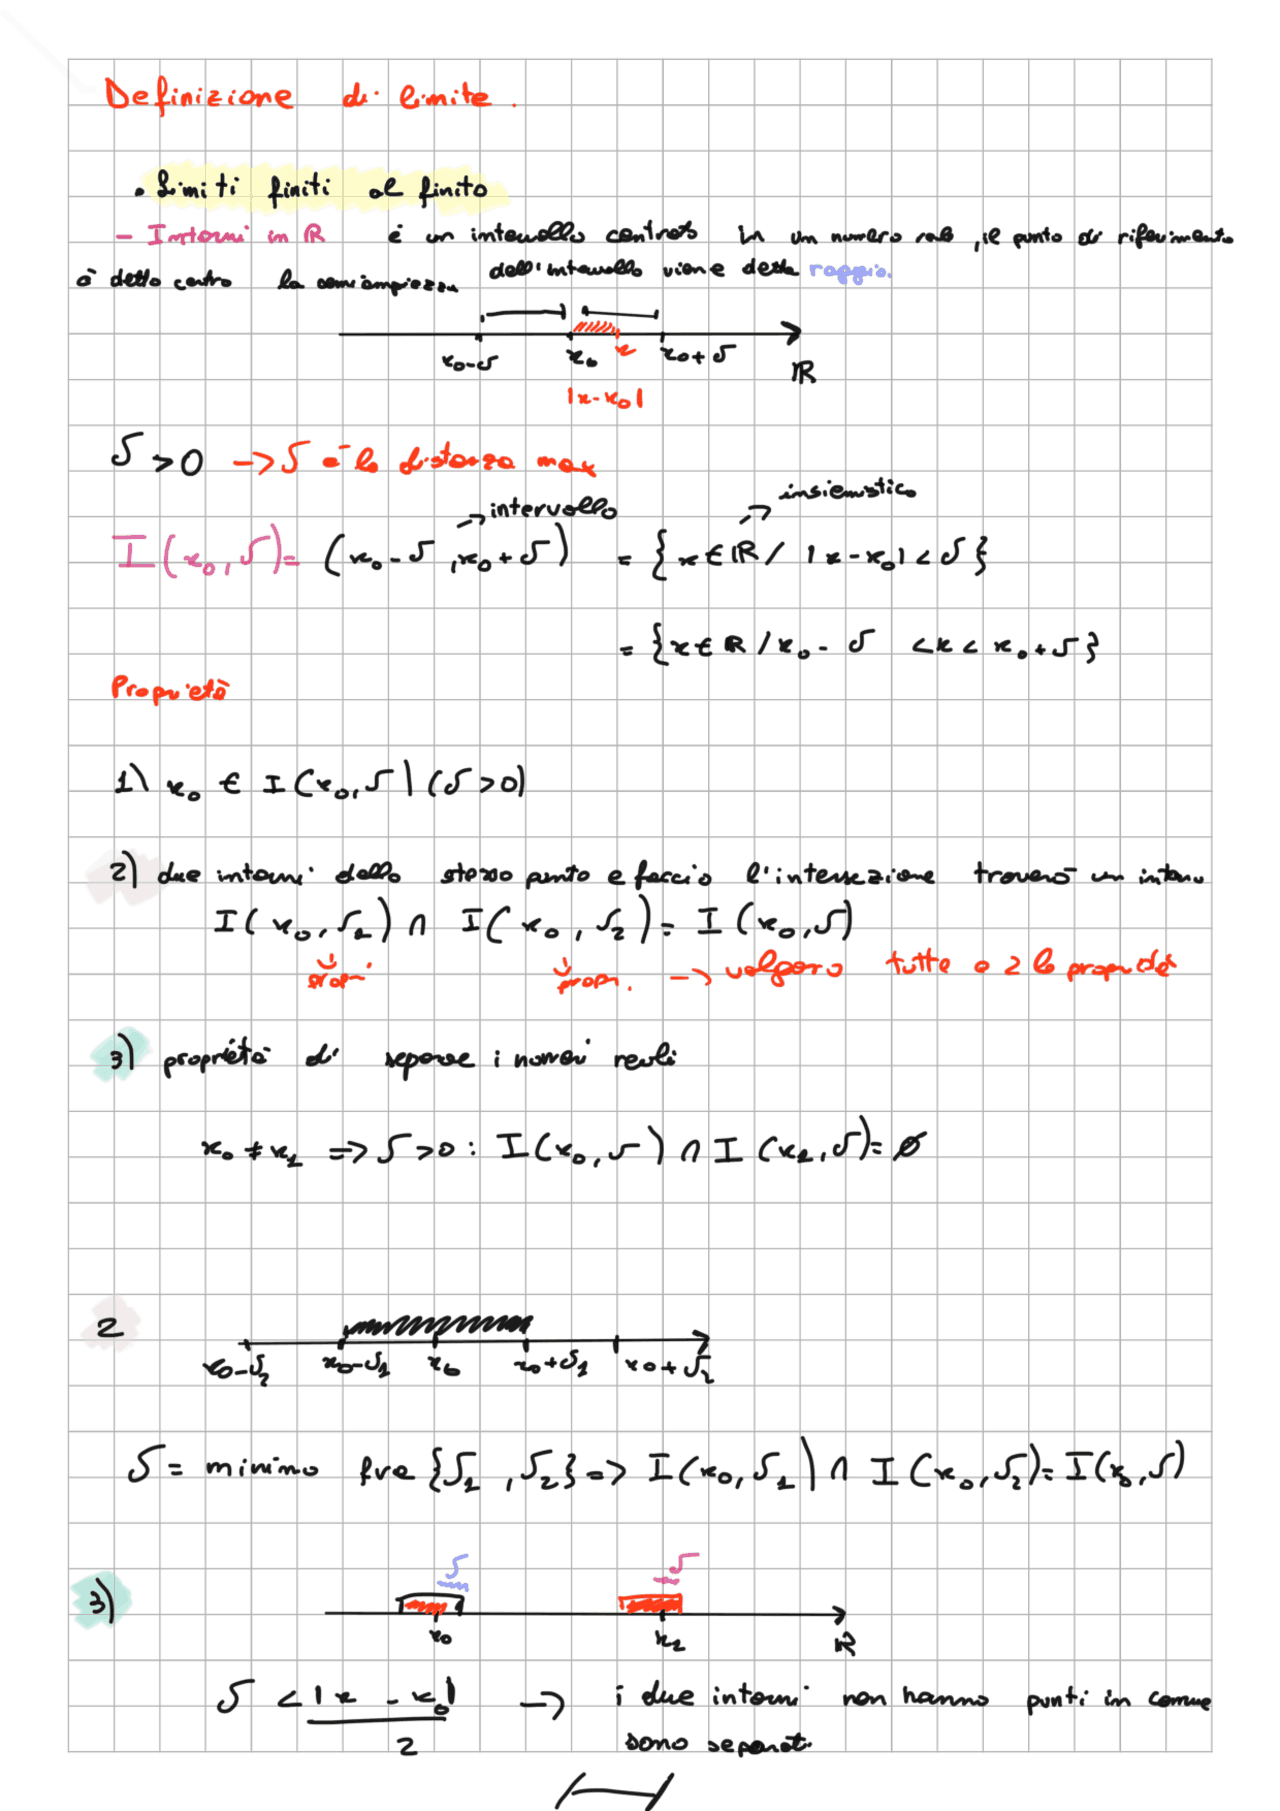 Definizione di limite.
• Limiti finiti al finito
- Intorni in ℝ è un intervallo centrato in un numero reale, il punto di riferimento
è detto centro la semiampiezza dell'intervallo viene detta raggio.
x₀-δ x₀ x x₀+δ ℝ
|x-x₀|
δ>0 -> δ è la distanza max
-> intervallo -> insiemistico
I(x₀,δ)= (x₀-δ, x₀+δ) = {x∈ℝ/ |x-x₀|<δ}
= {x∈ℝ/x₀-δ <x< x₀+δ}
Proprietà
1) x₀ ∈ I(x₀,δ) (δ>0)
2) due intorni dello stesso punto e faccio l'intersezione troverò un intorno
I(x₀,δ₁) ∩ I(x₀,δ₂)= I(x₀,δ)
propr. propr. -> valgono tutte e 2 le proprietà
3) proprietà di separare i numeri reali
x₀≠x₁ => δ>0: I(x₀,δ) ∩ I(x₁,δ)=∅
2
x₀-δ₂ x₀-δ₁ x₀ x₀+δ₁ x₀+δ₂
δ= minimo fra {δ₁,δ₂}=> I(x₀,δ₁) ∩ I(x₀,δ₂)= I(x₀,δ)
δ δ
3)
x₀ x₁ ℝ
δ < |x - x₀| / 2 -> i due intorni non hanno punti in comune
sono separati